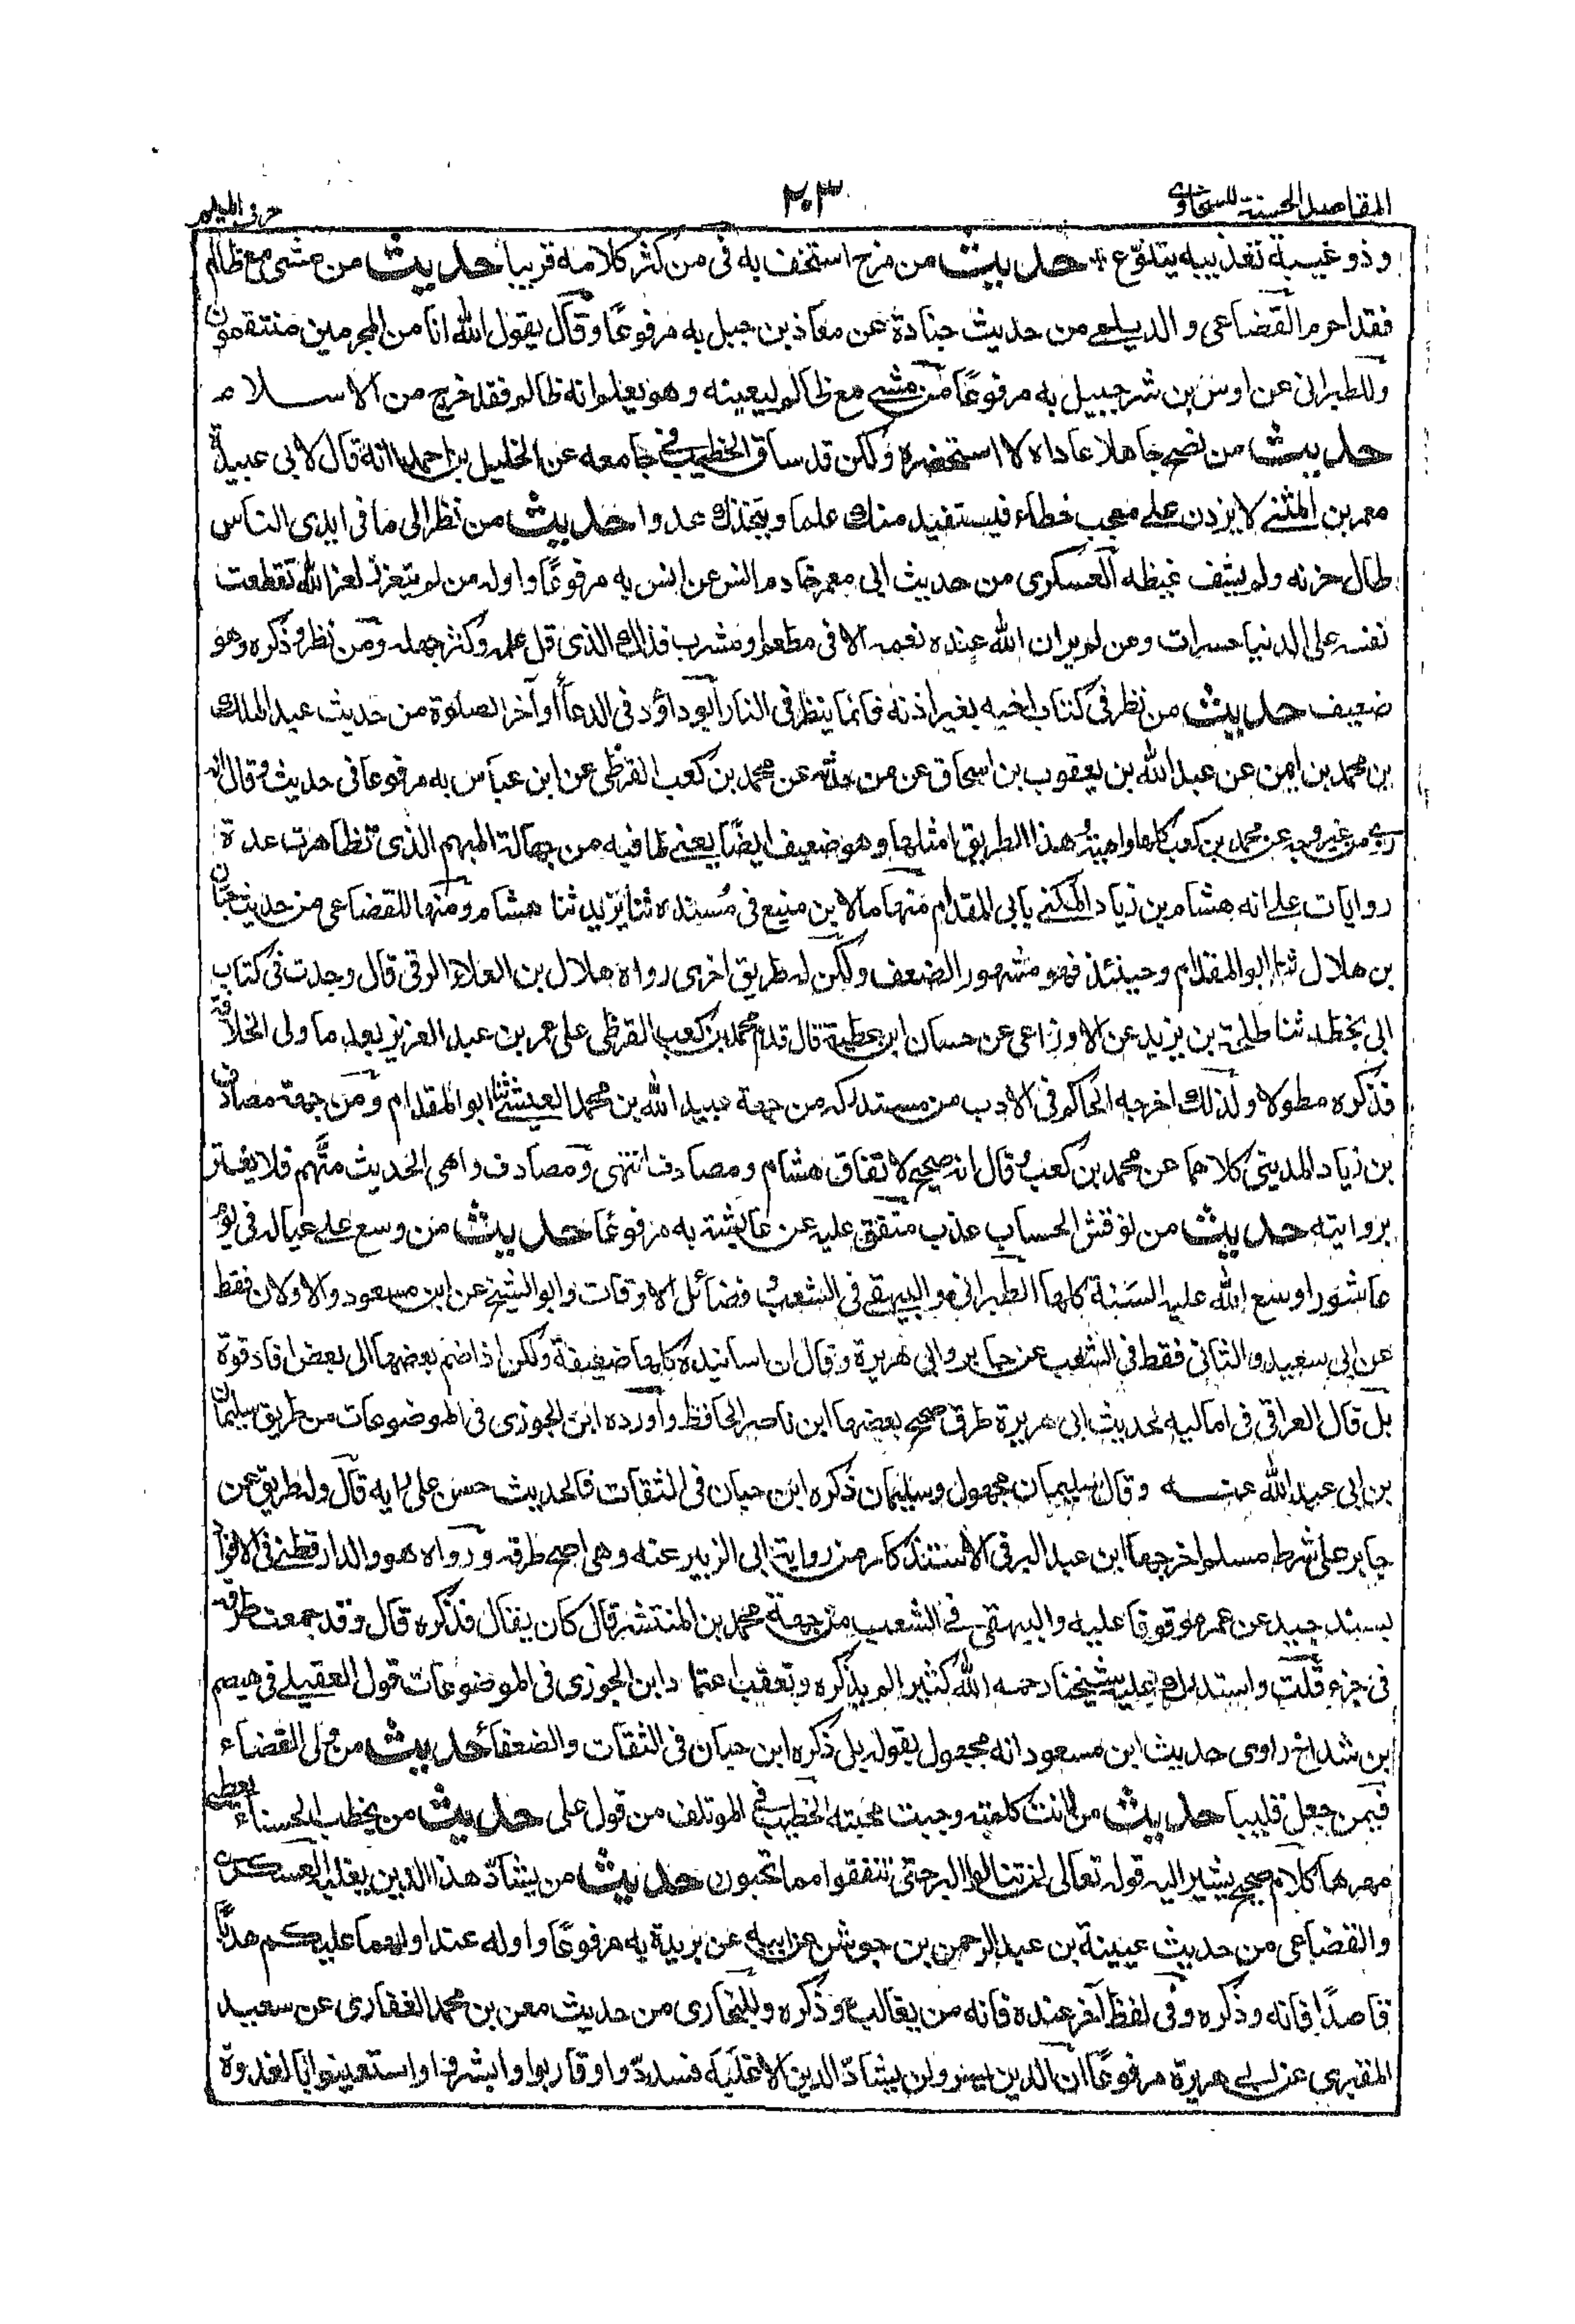 المقاصد الحسنة للسخاوى
٢٠٣
حرف الميم
وذو غيبة تعذيبه يتنوع * حديث من مزح استخف به فى من كثر كلامه قريبا حديث من مشى مع ظالم
فقد اجرم القضاعى والديلمى من حديث جنادة عن معاذ بن جبل به مرفوعا وقال يقول الله انا من المجرمين منتقمون
وللطبرانى عن اوس بن شرحبيل به مرفوعا من مشى مع ظالم ليعينه وهو يعلم انه ظالم فقد خرج من الاسلام
حديث من نصح جاهلا عاداه لا استحضره ولكن قد ساق الخطيب فى جامعه عن الخليل بن احمد انه قال لابى عبيدة
معمر بن المثنى لا يزدن على معجب خطاء فيستفيد منك علما ويتخذك عدوا حديث من نظر الى ما فى ايدى الناس
طال حزنه ولم يشف غيظه العسكرى من حديث ابى معمر خادم انس عن انس به مرفوعا واوله من لم يتعزز لعز الله تقطعت
نفسه على الدنيا حسرات ومن لم ير ان الله عنده نعمه الا فى مطعم ومشرب فذلك الذى قل علمه وكثر جهله ومن نظر وذكره وهو
ضعيف حديث من نظر فى كتاب اخيه بغير اذنه فانما ينظر فى النار ابو داؤد فى الدعاء أواخر الصلوة من حديث عبد الملك
بن محمد بن ايمن عن عبد الله بن يعقوب بن اسحاق عن من حدثه عن محمد بن كعب القرظى عن ابن عباس به مرفوعا فى حديث وقال انه
روى من غير وجه عن محمد بن كعب كلها واهية وهذا الطريق امثلها وهو ضعيف ايضا يعنى لما فيه من جهالة المبهم الذى تظاهرت عدة
روايات على انه هشام بن زياد المكنى بابى المقدام منها ما لابن منيع فى مسنده ثنا يزيد ثنا هشام ومنها للقضاعى من حديث عبان
بن هلال ثنا ابو المقدام وحينئذ فهو مشهور الضعف ولكن له طريق اخرى رواه هلال بن العلاء الرقى قال وجدت فى كتاب
ابى بخطه ثنا طلحة بن يزيد عن الاوزاعى عن حسان ابن عطية قال قدم محمد بن كعب القرظى على عمر بن عبد العزيز بعد ما ولى الخلافة
فذكره مطولا ولذلك اخرجه الحاكم فى الادب من مستدركه من جهة عبيد الله بن محمد العيشى ثنا ابو المقدام ومن جهة مصادف
بن زياد المدينى كلاهما عن محمد بن كعب وقال انه صحيح لاتفاق هشام ومصادف انتهى ومصادف واهى الحديث متهم فلا يغتر
بروايته حديث من نوقش الحساب عذب متفق عليه عن عائشة به مرفوعا حديث من وسع على عياله فى يوم
عاشورا وسع الله عليه السنة كلها الطبرانى والبيهقى فى الشعب وفضائل الاوقات وابو الشيخ عن ابن مسعود والاولان فقط
عن ابى سعيد والثانى فقط فى الشعب عن جابر وابى هريرة وقال ان اسانيده كلها ضعيفة ولكن اذا ضم بعضها الى بعض افاد قوة
بل قال العراقى فى اماليه لحديث ابى هريرة طرق صحح بعضها ابن ناصر الحافظ وأورده ابن الجوزى فى الموضوعات من طريق سليمان
بن ابى عبد الله عنه وقال سليمان مجهول وسليمان ذكره ابن حبان فى الثقات فالحديث حسن على رايه قال وله طريق عن
جابر على شرط مسلم اخرجها ابن عبد البر فى الاستذكار من رواية ابى الزبير عنه وهى اصح طرقه ورواه هو والدارقطنى فى الافراد
بسند جيد عن عمر موقوفا عليه والبيهقى فى الشعب من جهة محمد بن المنتشر قال كان يقال فذكره قال وقد جمعت طرقه
فى جزء قلت واستدرك عليه شيخنا رحمه الله كثيرا لم يذكره وتعقب اعتماد ابن الجوزى فى الموضوعات قول العقيلى فى هيصم
ابن شداخ راوى حديث ابن مسعود انه مجهول بقوله بل ذكره ابن حبان فى الثقات والضعفاء حديث من ولى القضاء
فيمن جعل قليبا حديث من لانت كلمته وجبت محبته الخطيب فى الموتلف من قول على حديث من يخطب الحسناء يعطى
مهرها كلام صحيح يشير اليه قوله تعالى لن تنالوا البر حتى تنفقوا مما تحبون حديث من يشاد هذا الدين يغلبه العسكرى
والقضاعى من حديث عيينة بن عبد الرحمن بن جوشن عن ابيه عن بريدة به مرفوعا واوله عند اولهما عليكم هديا
قاصدا فانه وذكره وفى لفظ آخر عنده فانه من يغالب وذكره وللبخارى من حديث معن بن محمد الغفارى عن سعيد
المقبرى عن ابى هريرة مرفوعا ان الدين يسر ولن يشاد الدين الا غلبه فسددوا وقاربوا وابشروا واستعينوا بالغدوة